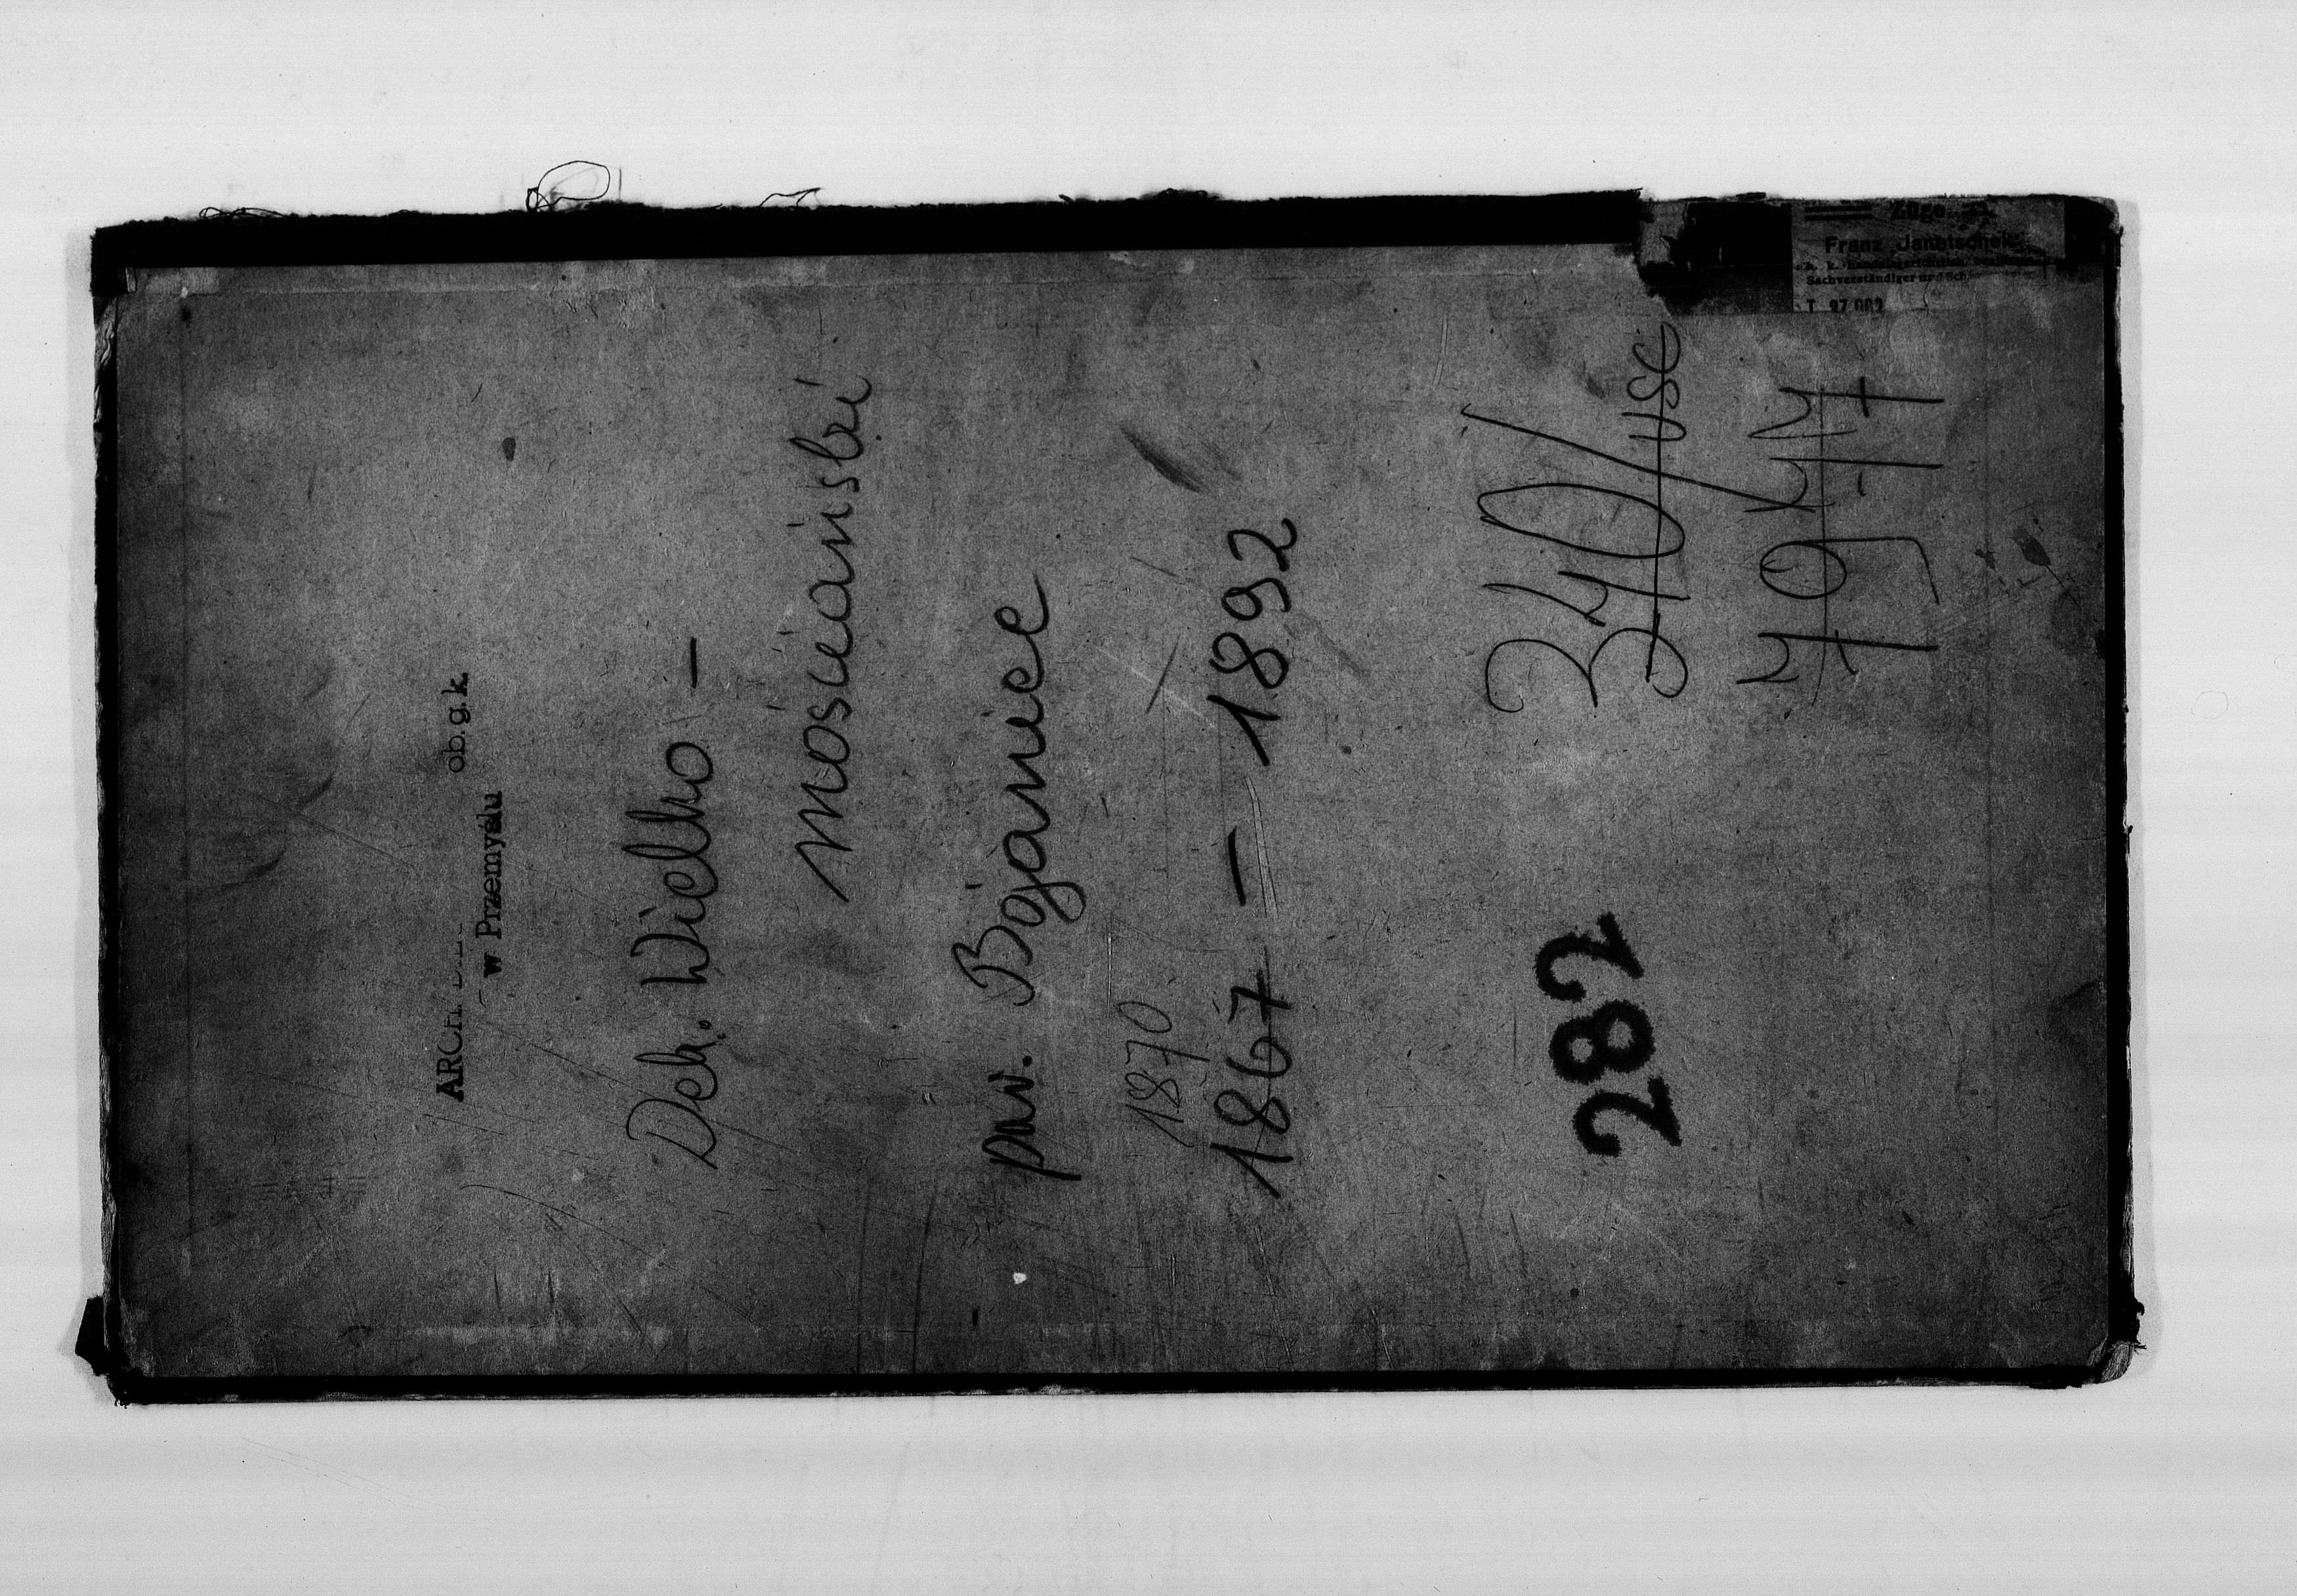 ob. g. k.
w Przemyślu
Dek. Wielko –
mościański
par. Bojaniec
1870
1867 – 1892
282
340/usc
Franz Janetschek
Sachverständiger und
T. 97.002